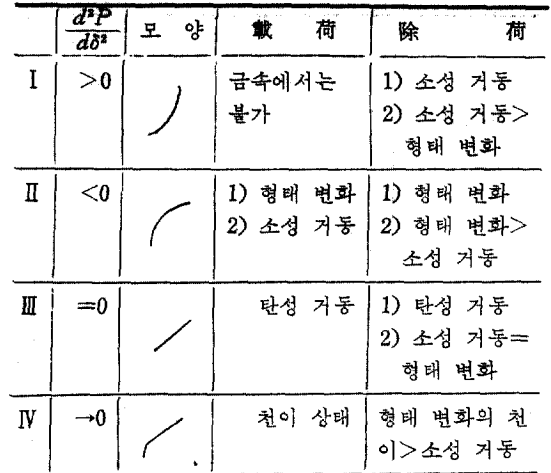 d²P/dδ² 모양 載荷 除荷
I >0 금속에서는 1) 소성 거동
불가 2) 소성 거동>
형태 변화
II <0 1) 형태 변화 1) 형태 변화
2) 소성 거동 2) 형태 변화>
소성 거동
III =0 탄성 거동 1) 탄성 거동
2) 소성 거동=
형태 변화
IV →0 천이 상태 형태 변화의 천
이>소성 거동